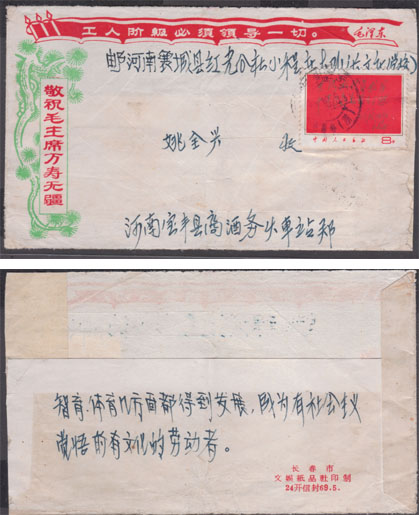 工人阶级必须领导一切。
毛泽东
敬祝毛主席万寿无疆
邮河南襄城县红光公社小
姚全兴 收
中国人民邮政 8分
河南宝丰县商酒务火车站邮
智育、体育几方面都得到发展，成为有社会主义
觉悟的有文化的劳动者。
长春市
文娱纸品社印制
24开信封69.5.